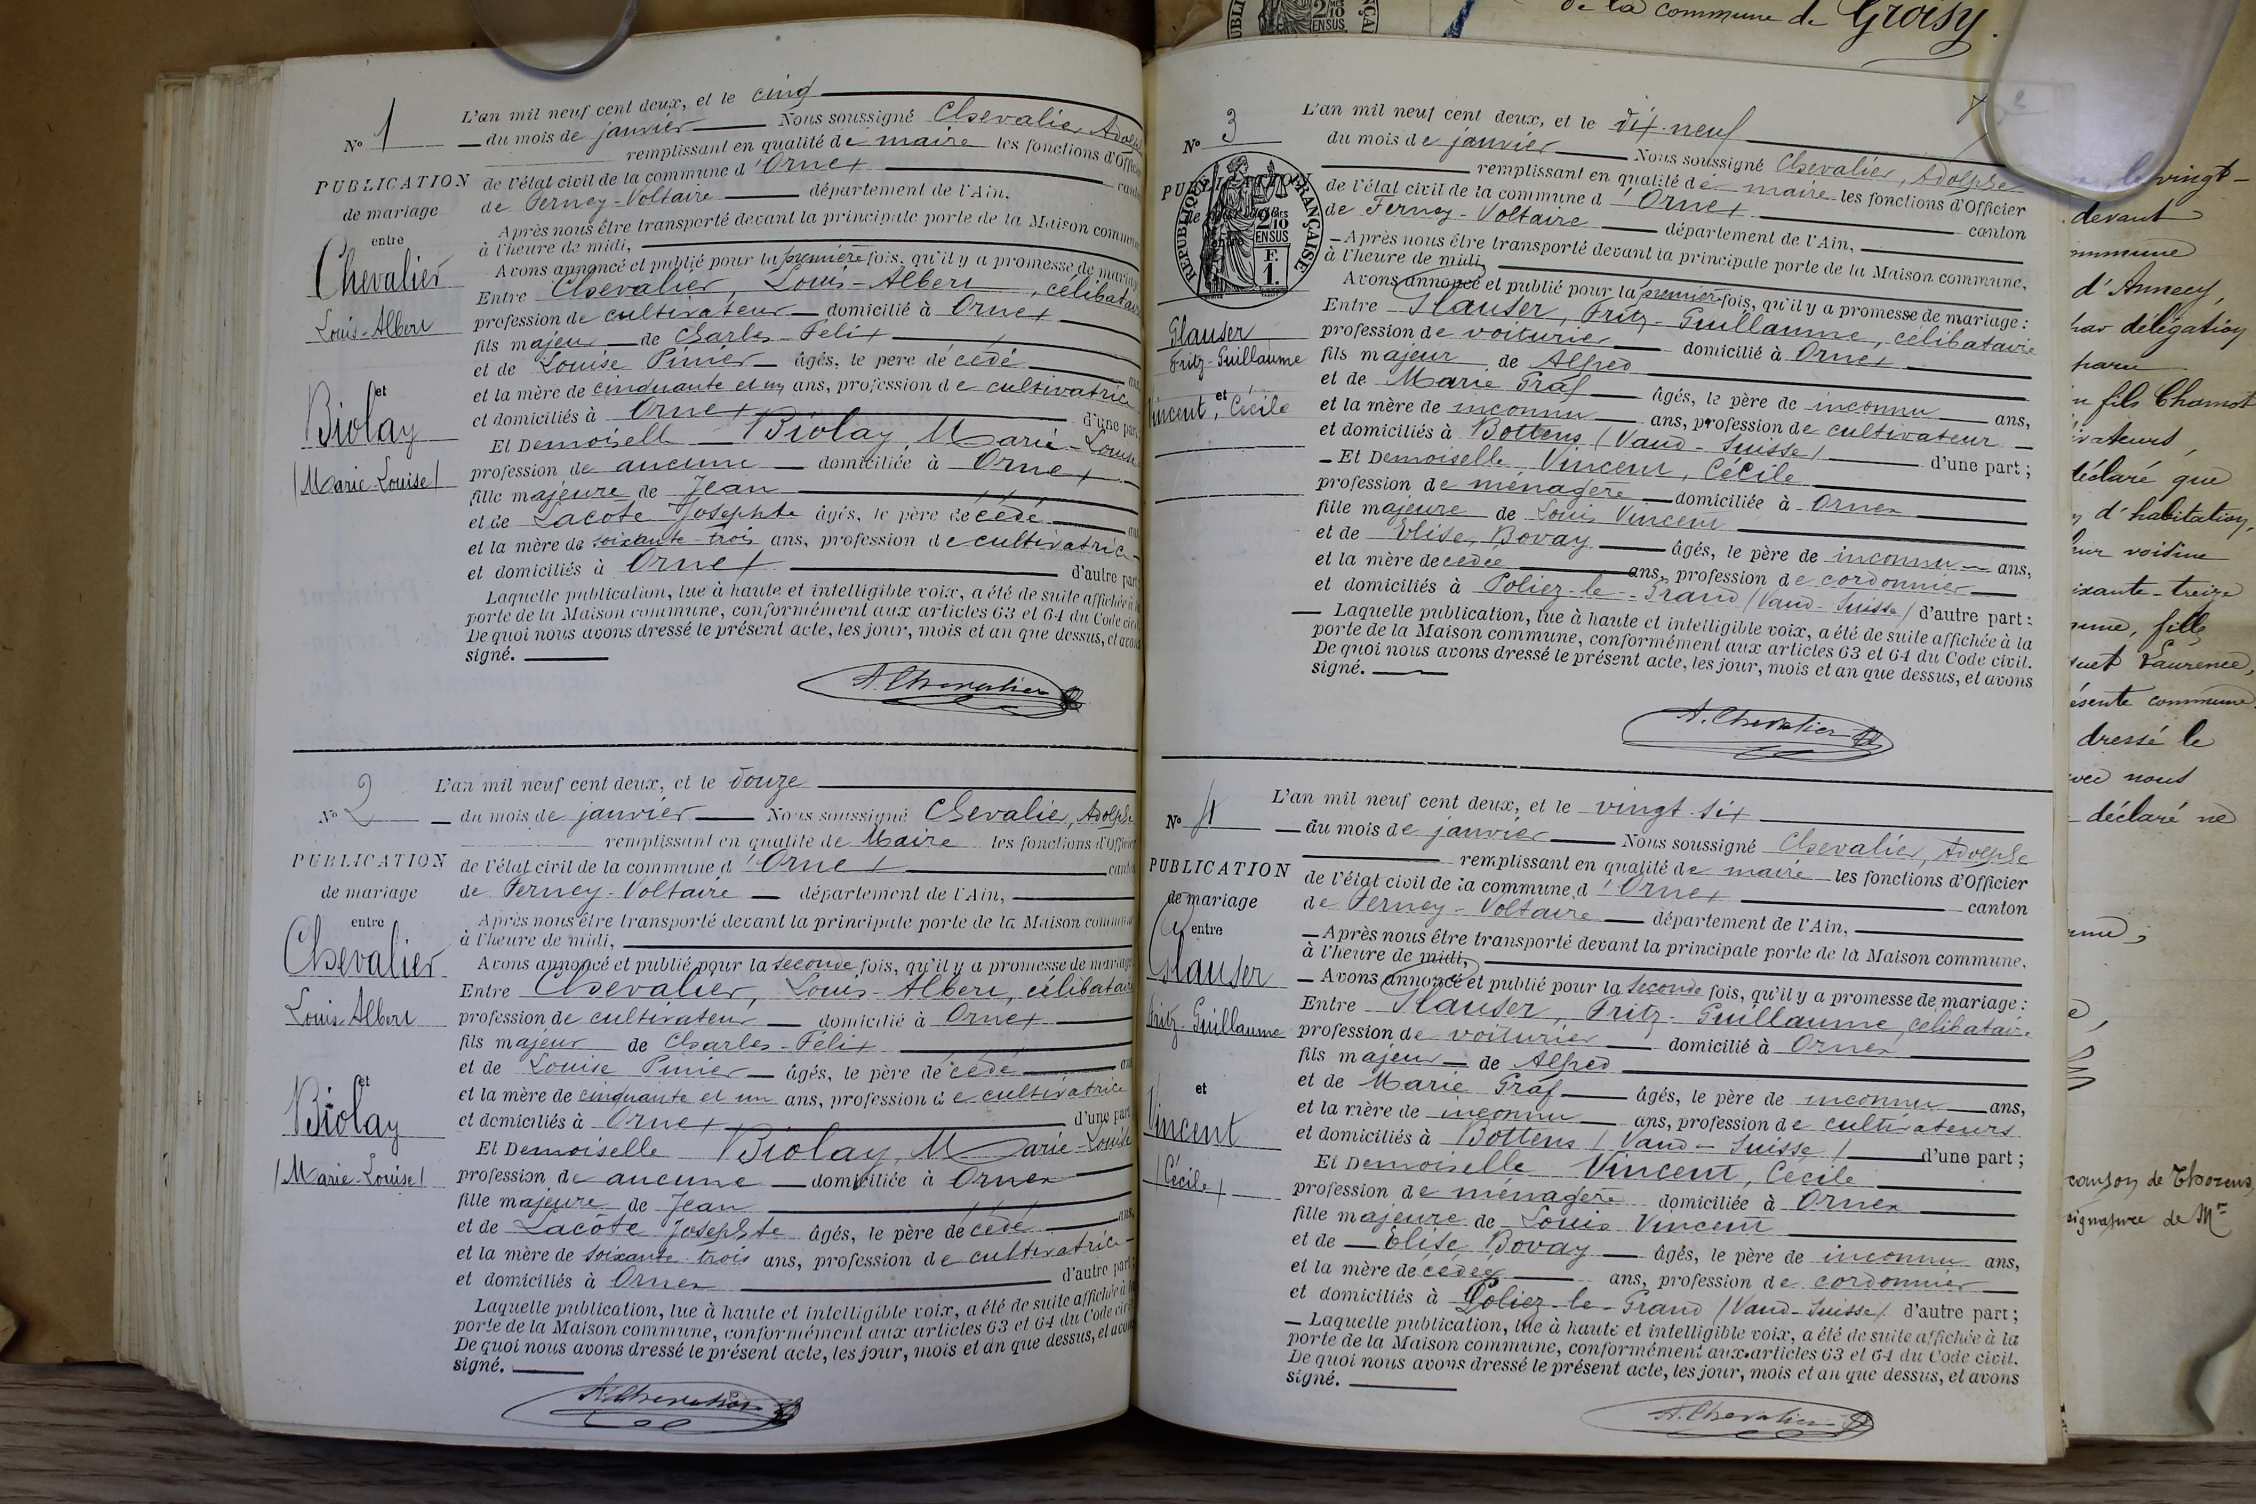 L'an mil neuf cent deux, et le cinq
Nº 1 du mois de janvier Nous soussigné Chevalier, Adolphe
remplissant en qualité de maire les fonctions d'Officier
PUBLICATION de l'état civil de la commune d'Ornex canton
de mariage de Ferney-Voltaire département de l'Ain,
entre Après nous être transporté devant la principale porte de la Maison commune
à l'heure de midi,
Avons annoncé et publié pour la première fois, qu'il y a promesse de mariage
Chevalier Entre Chevalier, Louis-Albert, célibataire
Louis-Albert profession de cultivateur domicilié à Ornex
fils majeur de Charles-Félix
et de Louise Pinier âgés, le père décédé ans
et et la mère de cinquante et un ans, profession de cultivatrice
et domiciliés à Ornex d'une part
Biolay Et Demoiselle Biolay, Marie-Louise
(Marie-Louise) profession de aucune domiciliée à Ornex
fille majeure de Jean
et de Lacôte Josephte âgés, le père décédé ans
et la mère de soixante-trois ans, profession de cultivatrice
et domiciliés à Ornex d'autre part
Laquelle publication, lue à haute et intelligible voix, a été de suite affichée à la
porte de la Maison commune, conformément aux articles 63 et 64 du Code civil
De quoi nous avons dressé le présent acte, les jour, mois et an que dessus, et avons
signé.
A. Chevalier
L'an mil neuf cent deux, et le douze
Nº 2 du mois de janvier Nous soussigné Chevalier, Adolphe
remplissant en qualité de Maire les fonctions d'Officier
PUBLICATION de l'état civil de la commune d'Ornex canton
de mariage de Ferney-Voltaire département de l'Ain,
entre Après nous être transporté devant la principale porte de la Maison commune
à l'heure de midi,
Chevalier Avons annoncé et publié pour la seconde fois, qu'il y a promesse de mariage
Entre Chevalier, Louis-Albert, célibataire
Louis-Albert profession de cultivateur domicilié à Ornex
fils majeur de Charles-Félix
et de Louise Pinier âgés, le père décédé ans
et et la mère de cinquante et un ans, profession de cultivatrice
Biolay et domiciliés à Ornex d'une part
Et Demoiselle Biolay, Marie-Louise
(Marie-Louise) profession de aucune domiciliée à Ornex
fille majeure de Jean
et de Lacôte Josephte âgés, le père décédé ans,
et la mère de soixante-trois ans, profession de cultivatrice
et domiciliés à Ornex d'autre part
Laquelle publication, lue à haute et intelligible voix, a été de suite affichée à la
porte de la Maison commune, conformément aux articles 63 et 64 du Code civil
De quoi nous avons dressé le présent acte, les jour, mois et an que dessus, et avons
signé.
A. Chevalier
de la commune de Groisy.
L'an mil neuf cent deux, et le dix-neuf
Nº 3 du mois de janvier Nous soussigné Chevalier, Adolphe
remplissant en qualité de maire les fonctions d'Officier
PUBLICATION de l'état civil de la commune d'Ornex canton
de mariage de Ferney-Voltaire département de l'Ain,
RÉPUBLIQUE FRANÇAISE
2/10 EN SUS
F. 1.
Après nous être transporté devant la principale porte de la Maison commune,
à l'heure de midi,
Avons annoncé et publié pour la première fois, qu'il y a promesse de mariage :
Glauser Entre Glauser, Fritz-Guillaume, célibataire
Fritz-Guillaume profession de voiturier domicilié à Ornex
fils majeur de Alfred
et et de Marie Graf âgés, le père de inconnu ans,
Vincent, Cécile et la mère de inconnu ans, profession de cultivateur
et domiciliés à Bottens (Vaud-Suisse) d'une part ;
Et Demoiselle Vincent, Cécile
profession de ménagère domiciliée à Ornex
fille majeure de Louis Vincent
et de Elise Bovay âgés, le père de inconnu ans,
et la mère decédée ans, profession de cordonnier
et domiciliés à Poliez-le-Grand (Vaud-Suisse) d'autre part ;
Laquelle publication, lue à haute et intelligible voix, a été de suite affichée à la
porte de la Maison commune, conformément aux articles 63 et 64 du Code civil.
De quoi nous avons dressé le présent acte, les jour, mois et an que dessus, et avons
signé.
A. Chevalier
L'an mil neuf cent deux, et le vingt-six
Nº 4 du mois de janvier Nous soussigné Chevalier, Adolphe
remplissant en qualité de maire les fonctions d'Officier
PUBLICATION de l'état civil de la commune d'Ornex canton
de mariage de Ferney-Voltaire département de l'Ain,
entre Après nous être transporté devant la principale porte de la Maison commune,
à l'heure de midi,
Glauser Avons annoncé et publié pour la seconde fois, qu'il y a promesse de mariage :
Entre Glauser, Fritz-Guillaume, célibataire
Fritz-Guillaume profession de voiturier domicilié à Ornex
fils majeur de Alfred
et et de Marie Graf âgés, le père de inconnu ans,
Vincent et la mère de inconnu ans, profession de cultivateurs
et domiciliés à Bottens (Vaud-Suisse) d'une part ;
Et Demoiselle Vincent, Cécile
(Cécile) profession de ménagère domiciliée à Ornex
fille majeure de Louis Vincent
et de Elise Bovay âgés, le père de inconnu ans,
et la mère decédée ans, profession de cordonnier
et domiciliés à Poliez-le-Grand (Vaud-Suisse) d'autre part ;
Laquelle publication, lue à haute et intelligible voix, a été de suite affichée à la
porte de la Maison commune, conformément aux articles 63 et 64 du Code civil.
De quoi nous avons dressé le présent acte, les jour, mois et an que dessus, et avons
signé.
A. Chevalier
vingt-
devant
commune
d'Annecy,
par délégation
fils Chamot
déclaré que
d'habitation,
leur voisine
soixante-treize
fille
Laurence,
présente commune
dressé le
avec nous
déclaré ne
de Thorens,
signature de Mr